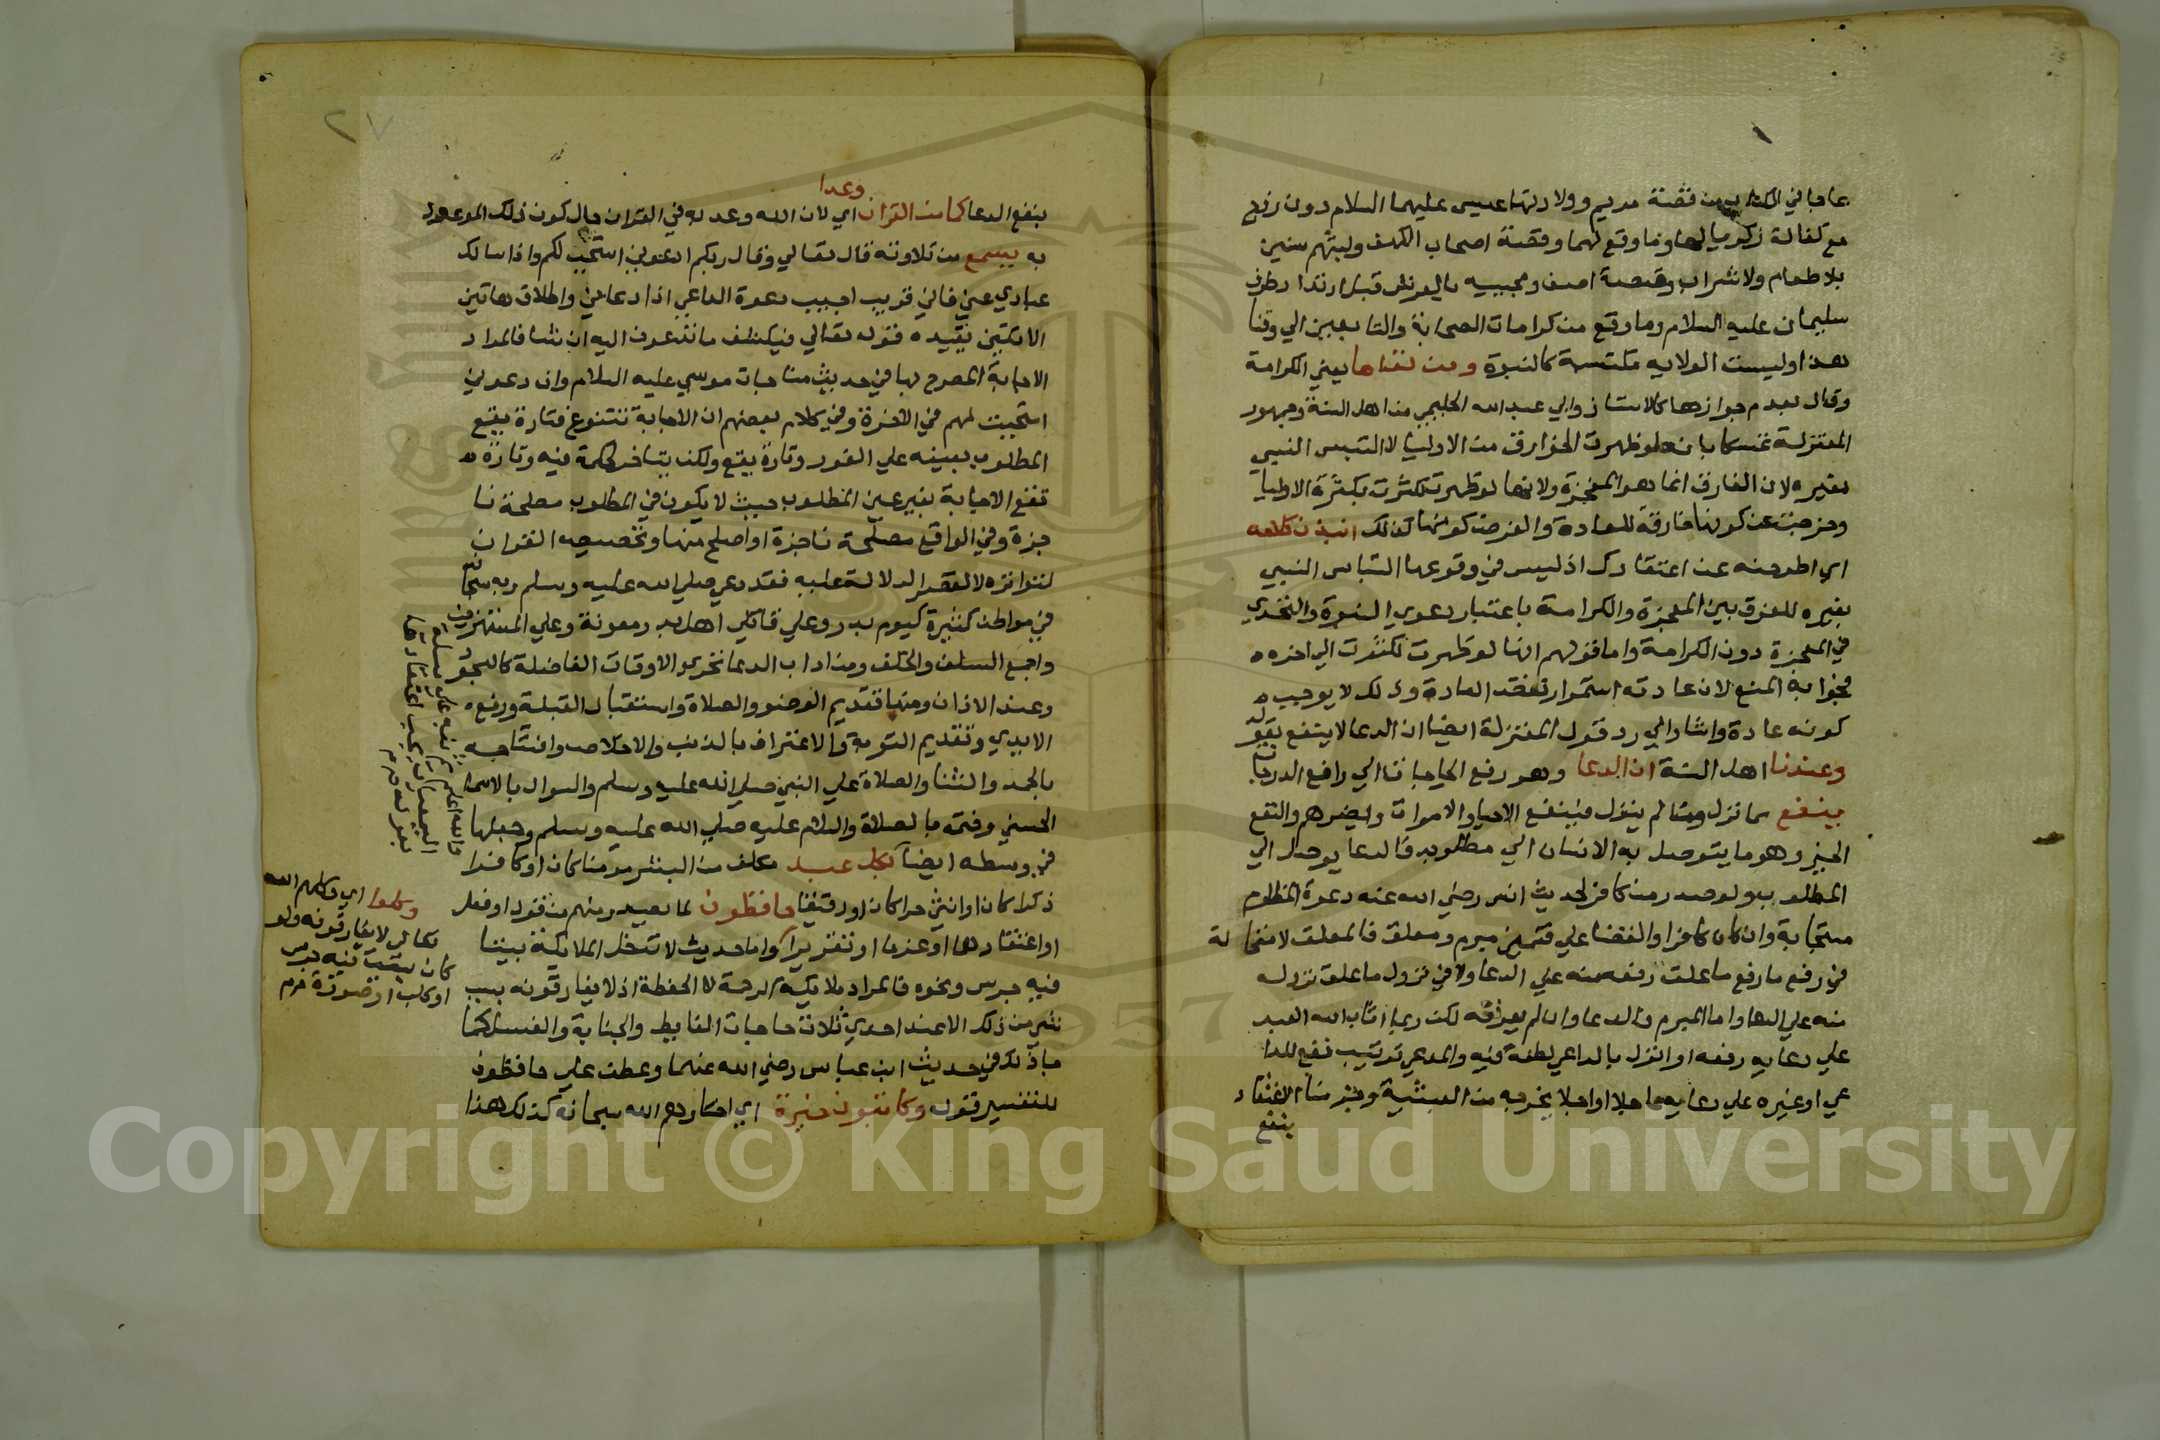 عا جا في الكتاب من قصة مريم وولادتها عيسى عليهما السلام دون زوج
مع كفالة زكريا لها وما وقع لهما وقصة اصحاب الكهف ولبثهم سنين
بلا طعام ولا شراب وقصة اصف ومجييه بالعرش قبل ارتداد طرف
سليمان عليه السلام وما وقع من كرامات الصحابة والتابعين الي وقتنا
هذا وليست الولايه مكتسبة كالنبوة ومن نفاها يعني الكرامة
وقال بعدم جوازها كالاستاذ وابي عبد الله الحليمي من اهل السنة وجمهور
المعتزلة تمسكا بانه لو ظهرت الخوارق من الاوليا لالتبس النبي
بغيره لان الفارق انما هو المعجزة ولانها لو ظهرت لكثرت بكثرة الاوليا
وخرجت عن كونها خارقة للعادة والفرض كونها كذلك انبذن كلامه
اي اطرحنه عن اعتقادك اذ ليس في وقوعها التباس النبي
بغيره للفرق بين المعجزة والكرامة باعتبار دعوي النبوة والتحدي
في المعجزة دون الكرامة واما قولهم انها لو ظهرت لكثرت الي اخره
فجوابه المنع لان عادته استمرار نقض العادة وذلك لا يوجب
كونه عادة واشار الي رد قول المعتزلة ايضا ان الدعا لا ينفع بقوله
وعندنا اهل السنة ان الدعا وهو رفع الحاجات الي رافع الدرجات
ينفع مما نزل ومما لم ينزل فينفع الاحيا والاموات ويضرهم والنفع
الخير وهو ما يتوصل به الانسان الي مطلوبه فالدعا يوصل الي
المطلوب ولو صدر من كافر لحديث انس رضي الله عنه دعوة المظلوم
مستجابة وان كان كافرا والقضا علي قسمين مبرم ومعلق فالمعلق لا استحالة
في رفع ما رفع ما علق رفعه منه علي الدعا ولا في نزول ما علق نزوله
منه علي الدعا واما المبرم فالدعا وان لم يرفعه لكن ربما اثاب الله العبد
علي دعايه برفعه او انزل بالداعي لطفه فيه والمدعي ترتيب نفع للدا
عي او غيره علي دعايه عاجلا او اجلا يخرجه من العبثية
ينفع
٢٧
وعدا
ينفع الدعا كما من القران اي لان الله وعد به في القران حال كون ذلك الموعود
به يسمع من تلاوته قال تعالي وقال ربكم ادعوني استجب لكم واذا سالك
عبادي عني فاني قريب اجيب دعوة الداعي اذا دعاني واطلاق هاتين
الايتين يقيده قوله تعالي فيكشف ما تدعون اليه ان شا فالمراد
الاجابة المصرح بها في حديث مناجات موسي عليه السلام وان دعوني
استجبت لهم في الاخرة وفي كلام بعضهم ان الاجابة تتنوع فتارة يقع
المطلوب بعينه علي الفور وتارة يقع ولكن يتاخر لحكمة فيه وتارة
تقع الاجابة بغير عين المطلوب حيث لا يكون في المطلوب مصلحة نا
جزة وفي الواقع مصلحة ناجزة او اصلح منها وتخصيصه القران
لتواتره لا لقصر الدلالة عليه فقد دعي صلي الله عليه وسلم ربه سبحانه
في مواطن كثيرة كيوم بدر وعلي قاتلي اهل بير معونة وعلي المستهزين
واجمع السلف والخلف ومن اداب الدعا تحري الاوقات الفاضلة كالسجود
وعند الاذان ومنها تقديم الوضو والصلاة واستقبال القبلة ورفع
الايدي وتقديم التوبة والاعتراف بالذنب والاخلاص وافتتاحه
بالحمد والثنا والصلاة علي النبي صلي الله عليه وسلم والسوال بالاسما
الحسني وختمه بالصلاة والسلام عليه صلي الله عليه وسلم وجعلها
في وسطه ايضا لكل عبد مكلف من البشر مومنا كان او كافرا
ذكرا كان او انثي حرا كان او رقيقا حافظون لما يصدر منهم من قول او فعل
او اعتقاد هما او عزما او تقريرا واما حديث لا تدخل الملايكة بيتا
فيه جرس ونحوه فالمراد ملايكة الرحمة لا الحفظة اذ لا يفارقونه بسبب
شي من ذلك الا عند احدي ثلاث حاجات الغايط والجنابة والغسل كما
جا ذلك في حديث ابن عباس رضي الله عنهما وعطف علي حافظون
للتفسير قوله وكاتبون خيرة اي اختارهم الله سبحانه كذلك هذا
وكلوا اي وكلهم الله
تعالي لا يفارقونه ولو
كان ببيت فيه جرس
او كلب او صورة